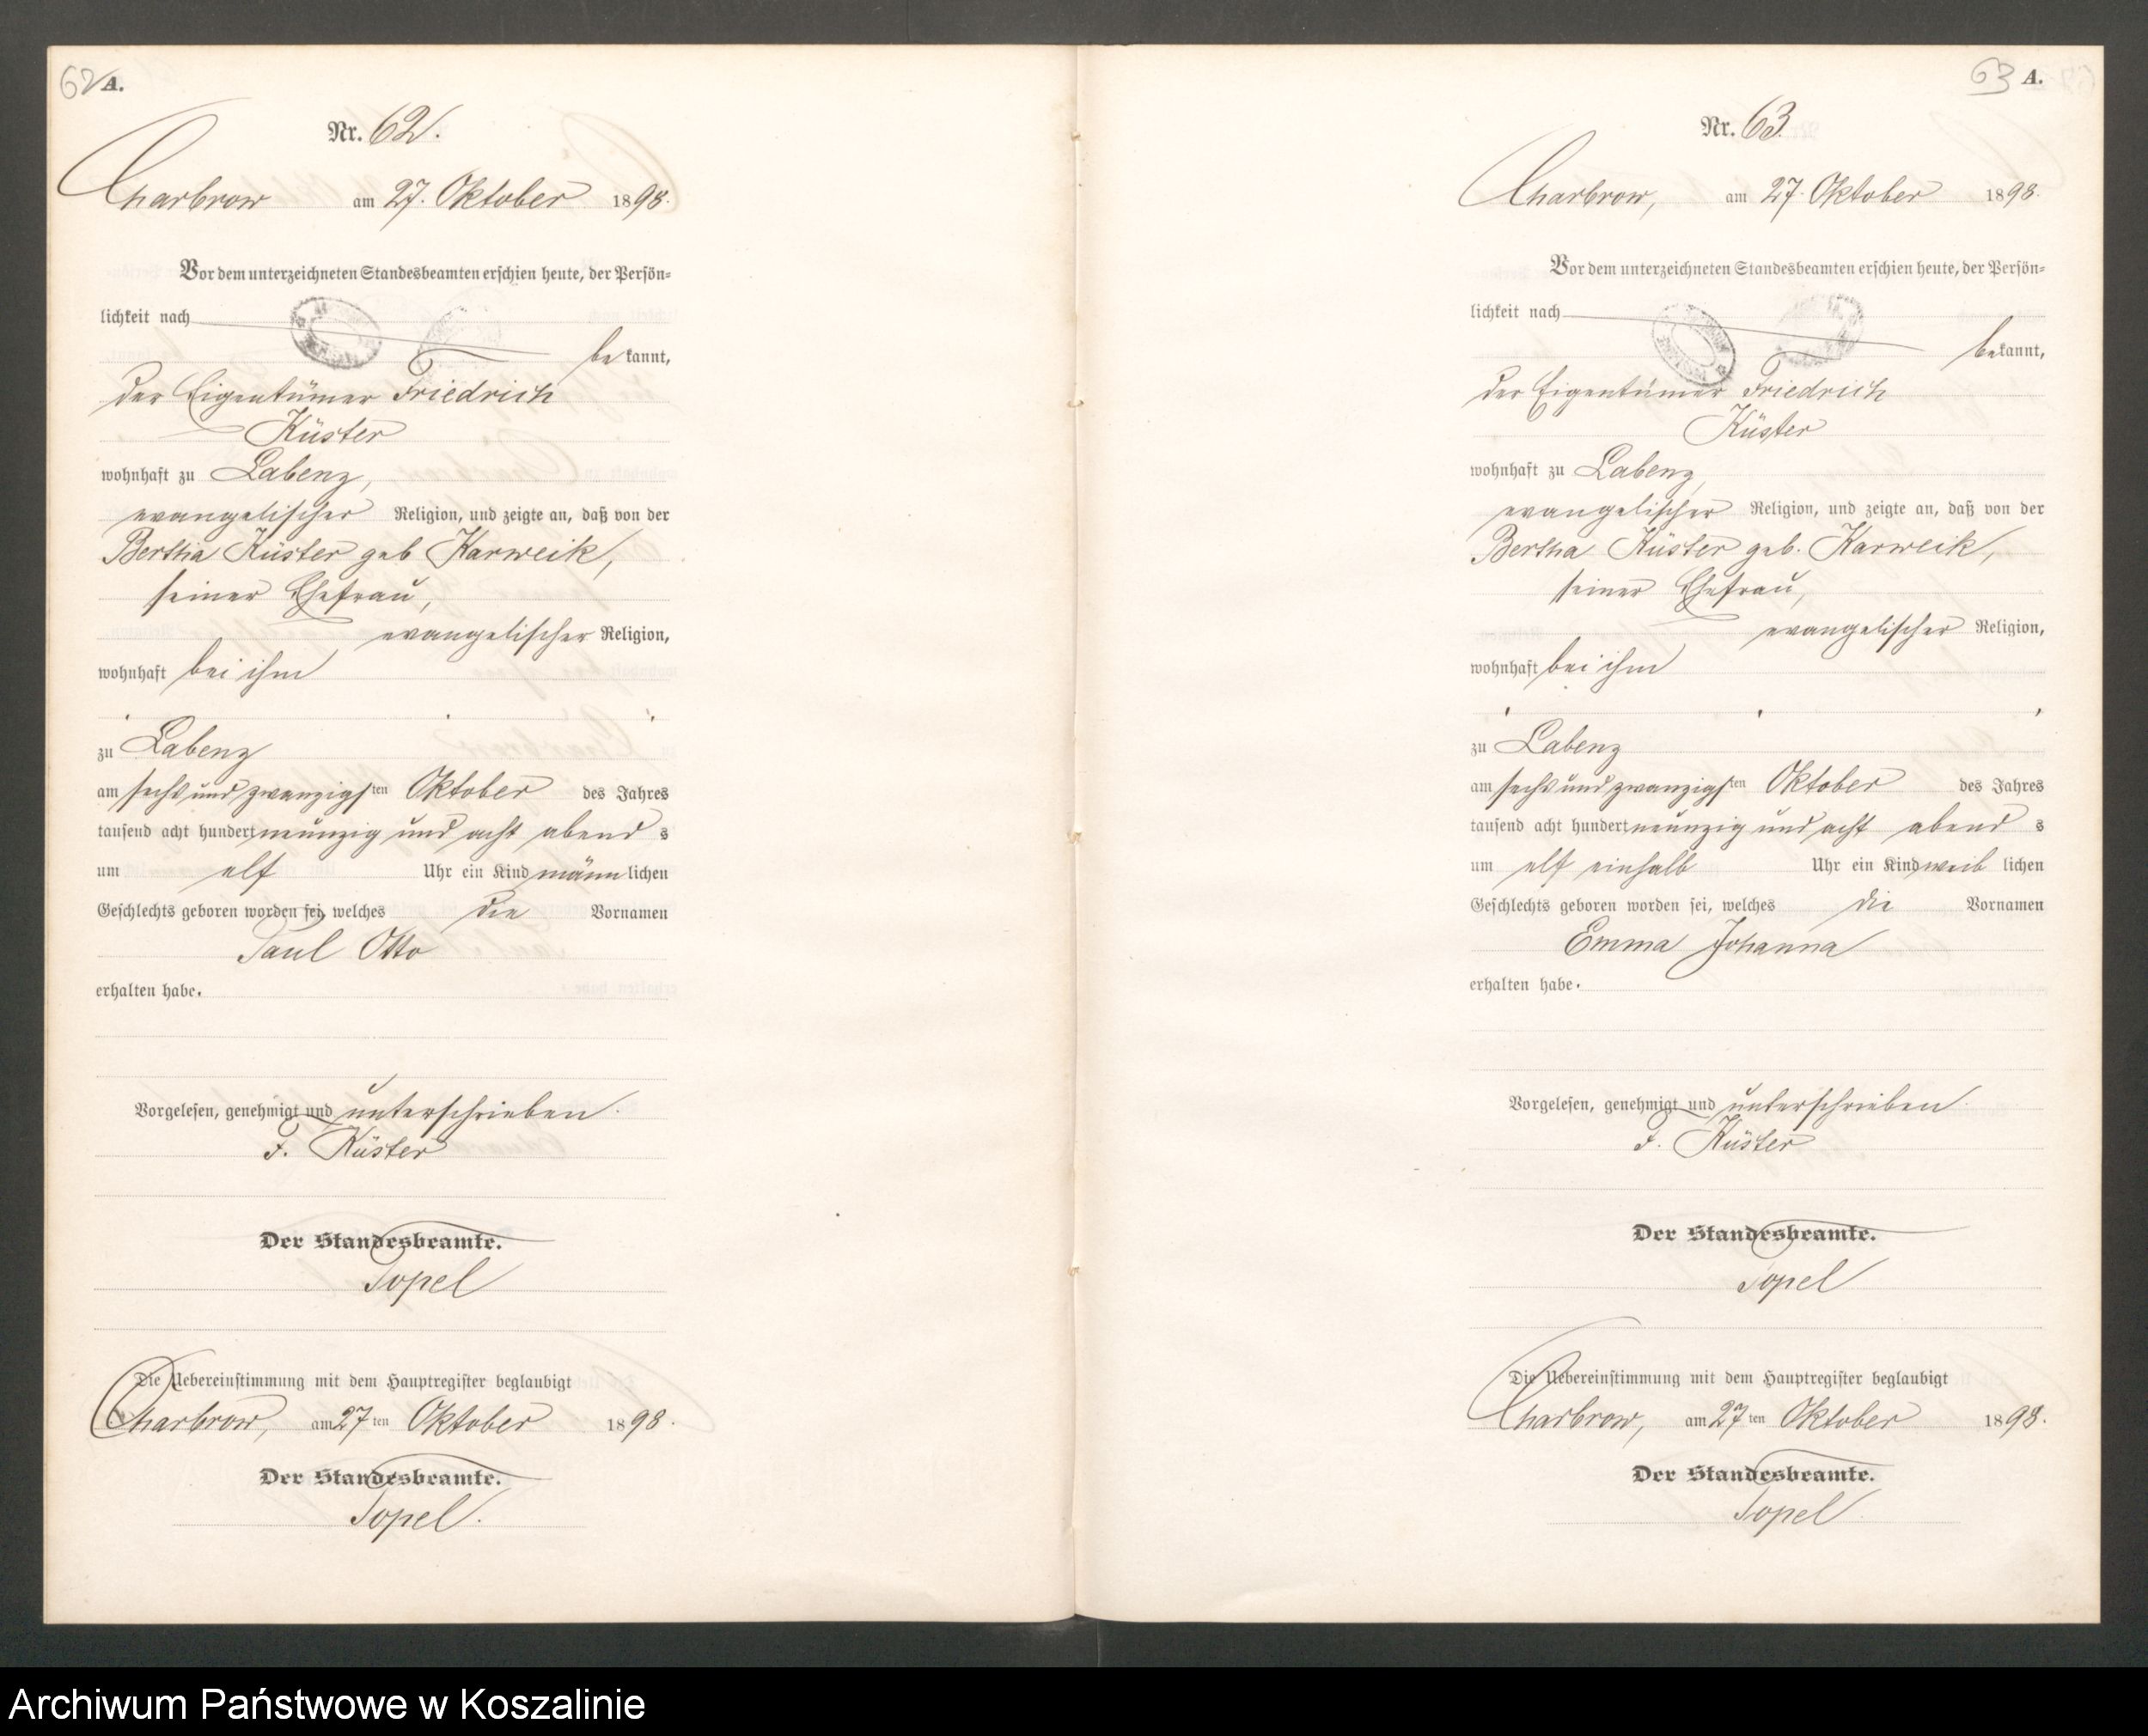 62 A.
Nr. 62.
Charbrow am 27. Oktober 1898.
Vor dem unterzeichneten Standesbeamten erschien heute, der Persön-
lichkeit nach
be kannt,
der Eigentümer Friedrich
Küster
wohnhaft zu Labenz,
evangelischer Religion, und zeigte an, daß von der
Bertha Küster geb Karweik,
seiner Ehefrau,
evangelischer Religion,
wohnhaft bei ihm
zu Labenz
am sechs und zwanzigsten Oktober des Jahres
tausend acht hundert neunzig und acht abend s
um elf Uhr ein Kind männlichen
Geschlechts geboren worden sei, welches die Vornamen
Paul Otto
erhalten habe.
Vorgelesen, genehmigt und unterschrieben.
F. Küster
Der Standesbeamte.
Topel
Die Uebereinstimmung mit dem Hauptregister beglaubigt
Charbrow, am 27ten Oktober 1898.
Der Standesbeamte.
Topel.
63 A.
Nr. 63.
Charbrow, am 27. Oktober 1898.
Vor dem unterzeichneten Standesbeamten erschien heute, der Persön-
lichkeit nach
bekannt,
der Eigentümer Friedrich
Küster
wohnhaft zu Labenz,
evangelischer Religion, und zeigte an, daß von der
Bertha Küster geb. Karweik,
seiner Ehefrau,
evangelischer Religion,
wohnhaft bei ihm
zu Labenz
am sechs und zwanzigsten Oktober des Jahres
tausend acht hundert neunzig und acht abend s
um elf einhalb Uhr ein Kind weib lichen
Geschlechts geboren worden sei, welches die Vornamen
Emma Johanna
erhalten habe.
Vorgelesen, genehmigt und unterschrieben.
F. Küster
Der Standesbeamte.
Topel
Die Uebereinstimmung mit dem Hauptregister beglaubigt
Charbrow, am 27ten Oktober 1898.
Der Standesbeamte.
Topel
Archiwum Państwowe w Koszalinie